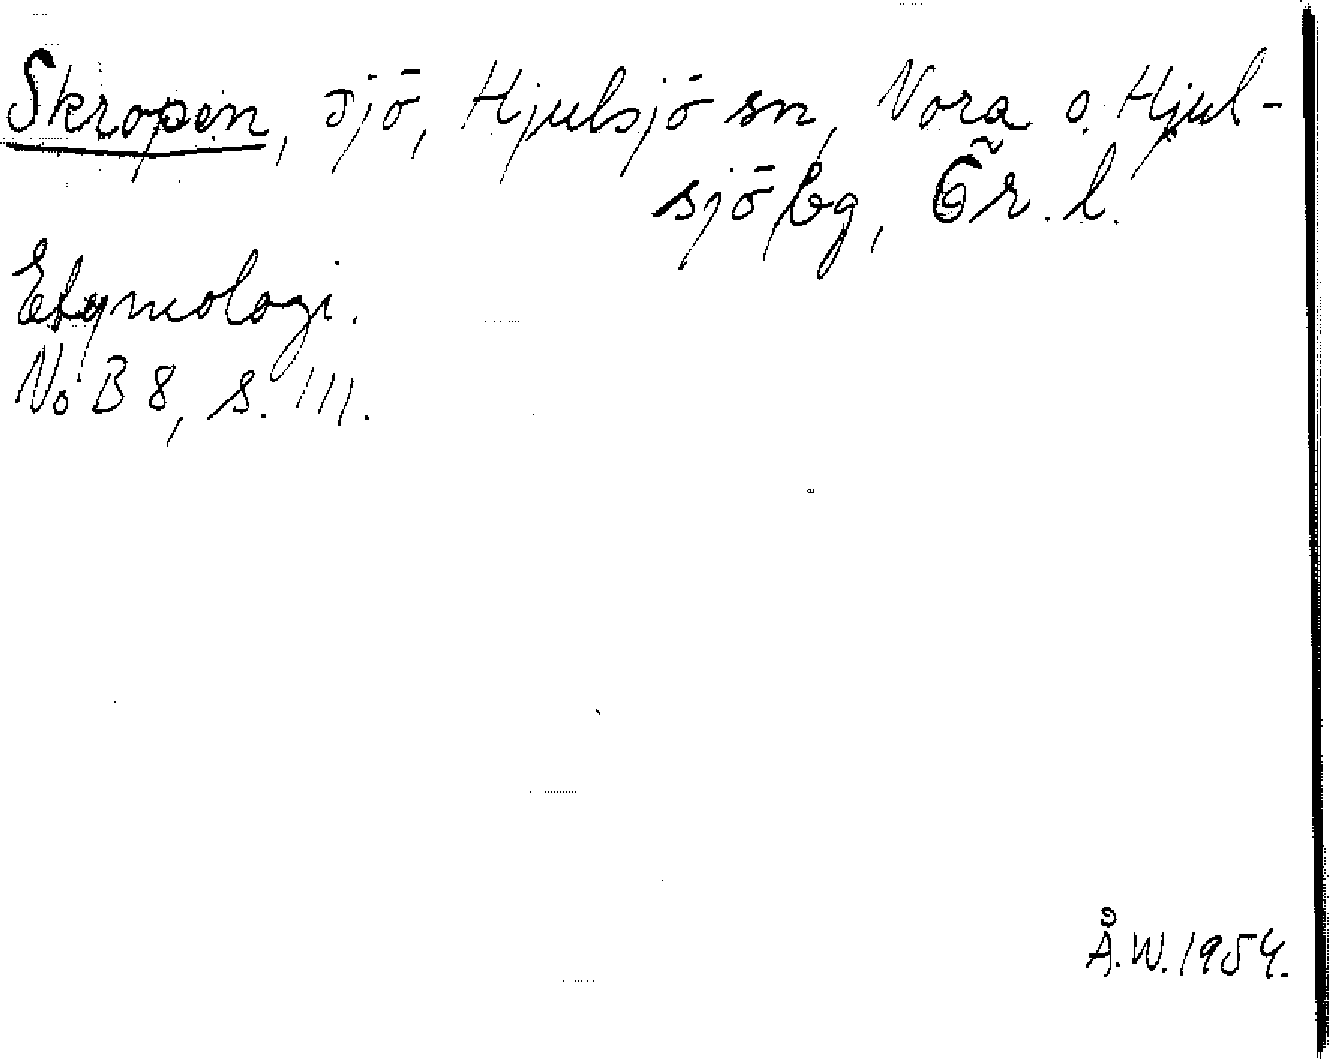 Skropen, sjö, Hjulsjö sn, Nora o. Hjul-
sjö bg, Ör. l.
Etymologi.
NoB 8, s. 111.
Å.W. 1954.